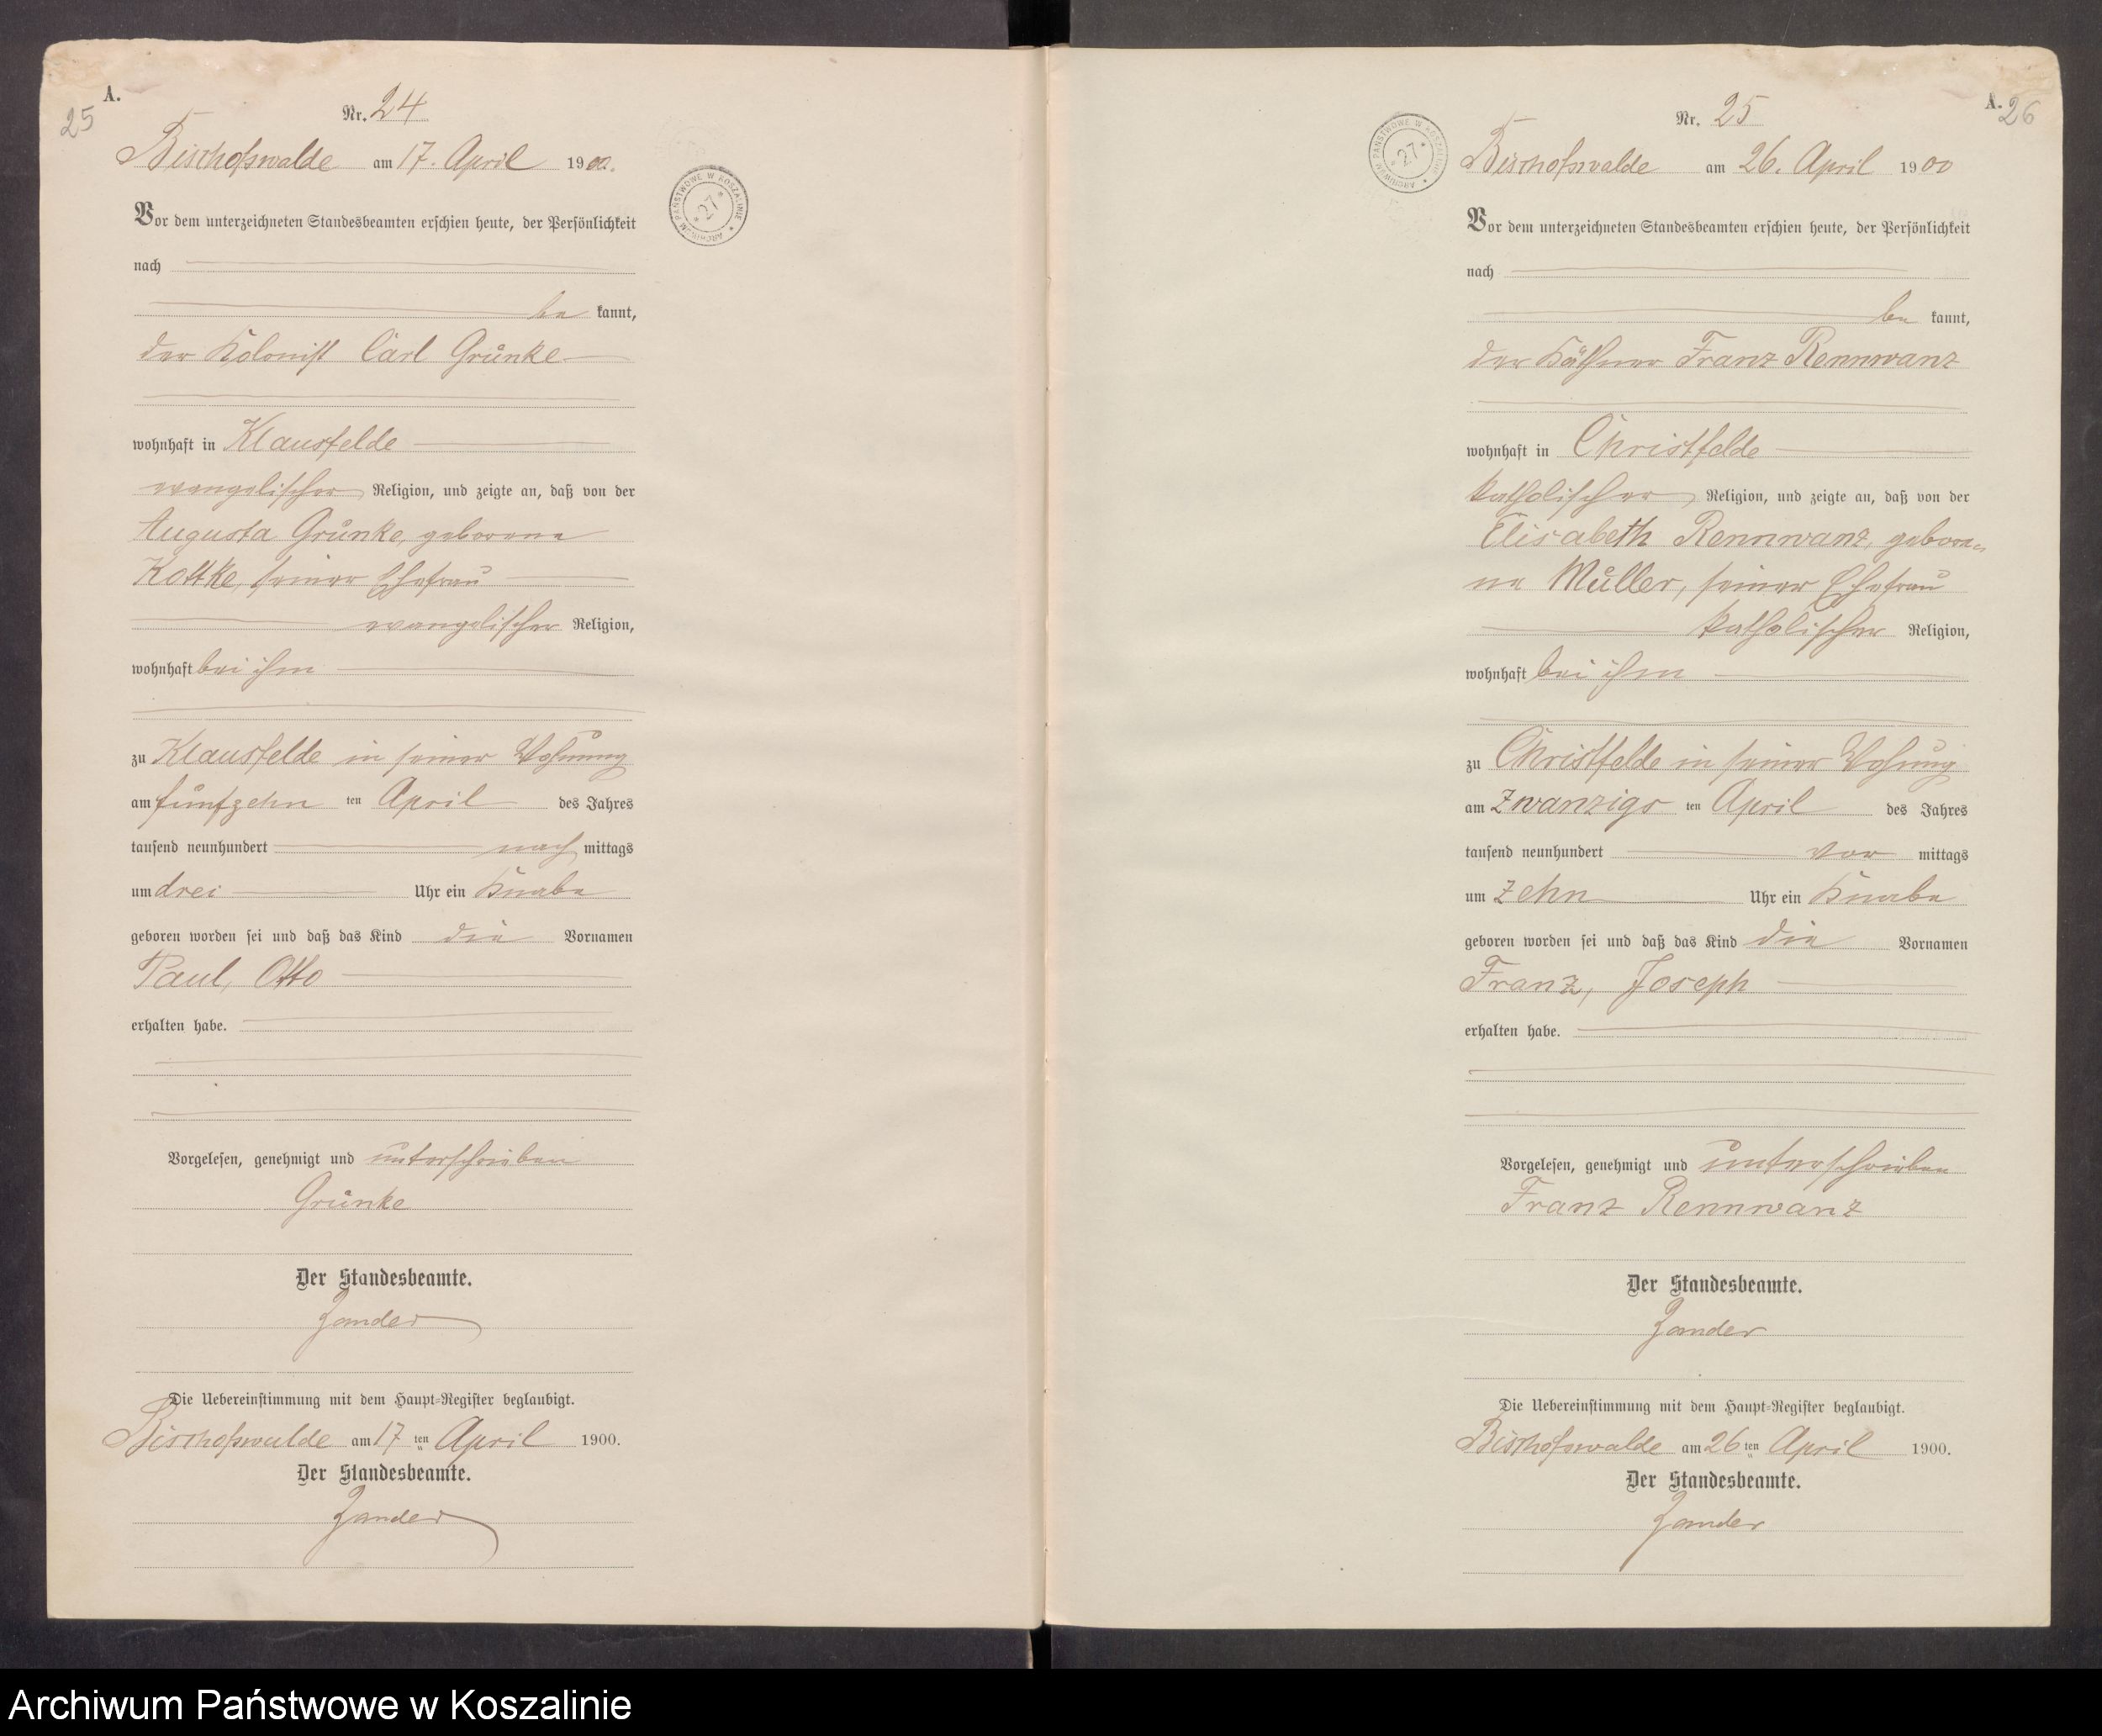 A.
25
Nr. 24
Bischofswalde am 17. April 1900.
Vor dem unterzeichneten Standesbeamten erschien heute, der Persönlichkeit
nach
be kannt,
der Kolonist Carl Grünke
wohnhaft in Klausfelde
evangelischer Religion, und zeigte an, daß von der
Augusta Grünke, geborene
Kottke, seiner Ehefrau
evangelischer Religion,
wohnhaft bei ihm
zu Klausfelde in seiner Wohnung
am fünfzehn ten April des Jahres
tausend neunhundert nach mittags
um drei Uhr ein Knabe
geboren worden sei und daß das Kind die Vornamen
Paul, Otto
erhalten habe.
Vorgelesen, genehmigt und unterschrieben
Grünke
Der Standesbeamte.
Zander
Die Uebereinstimmung mit dem Haupt-Register beglaubigt.
Bischofswalde am 17 ten April 1900.
Der Standesbeamte.
Zander
ARCHIWUM PAŃSTWOWE W KOSZALINIE
*27*
A.
26
Nr. 25
ARCHIWUM PAŃSTWOWE W KOSZALINIE
*27*
Bischofswalde am 26. April 1900
Vor dem unterzeichneten Standesbeamten erschien heute, der Persönlichkeit
nach
be kannt,
der Käthner Franz Rennwanz
wohnhaft in Christfelde
katholischer Religion, und zeigte an, daß von der
Elisabeth Rennwanz, gebore-
ne Müller, seiner Ehefrau
katholischer Religion,
wohnhaft bei ihm
zu Christfelde in seiner Wohung
am zwanzigs ten April des Jahres
tausend neunhundert vor mittags
um zehn Uhr ein Knabe
geboren worden sei und daß das Kind die Vornamen
Franz, Joseph
erhalten habe.
Vorgelesen, genehmigt und unterschrieben
Franz Rennwanz
Der Standesbeamte.
Zander
Die Uebereinstimmung mit dem Haupt-Register beglaubigt.
Bischofswalde am 26 ten April 1900.
Der Standesbeamte.
Zander
Archiwum Państwowe w Koszalinie